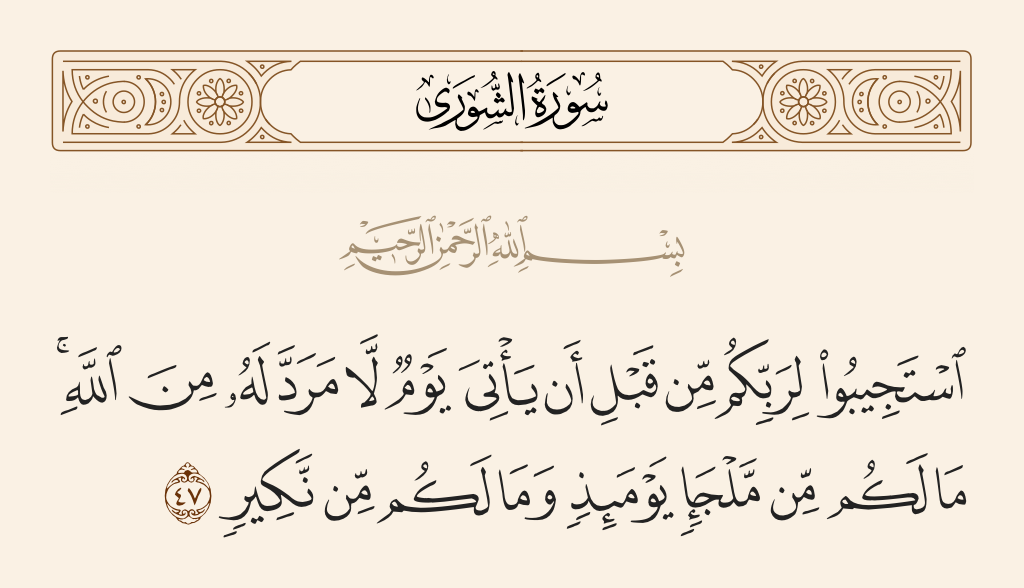 سُورَةُ الشُّورَىٰ
بِسْمِ ٱللَّهِ ٱلرَّحْمَٰنِ ٱلرَّحِيمِ
ٱسْتَجِيبُوا۟ لِرَبِّكُم مِّن قَبْلِ أَن يَأْتِىَ يَوْمٌ لَّا مَرَدَّ لَهُۥ مِنَ ٱللَّهِ ۚ
مَا لَكُم مِّن مَّلْجَإٍ يَوْمَئِذٍ وَمَا لَكُم مِّن نَّكِيرٍ ٤٧